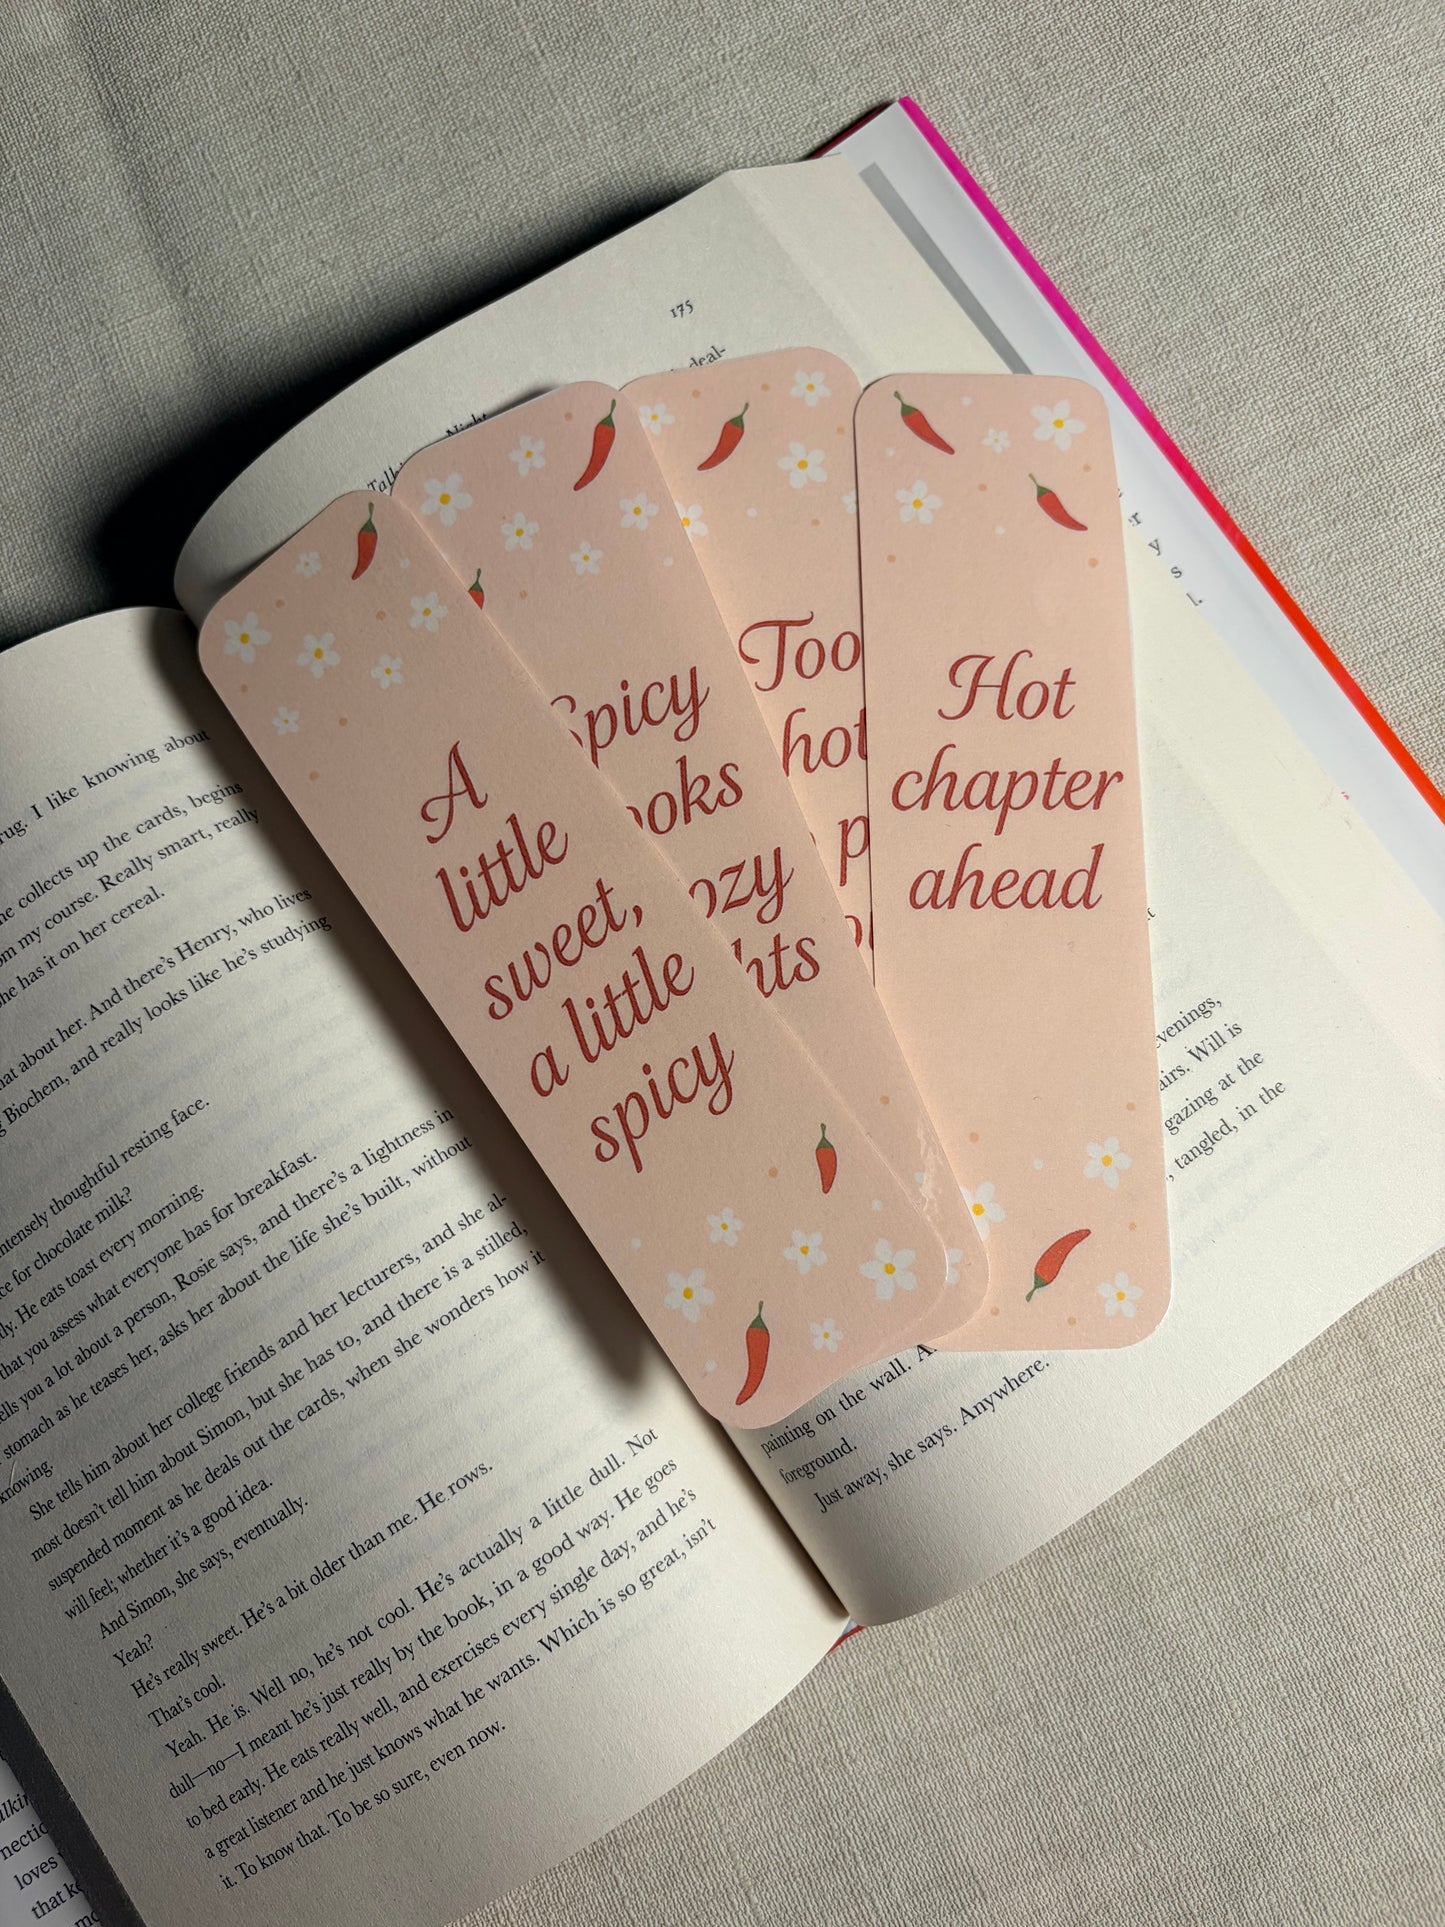 175
deal-
Night
A
little
sweet,
a little
spicy
Spicy
ooks
ozy
hts
Too
hot
p
Hot
chapter
ahead
rug. I like knowing about
he collects up the cards, begins
om my course. Really smart, really
he has it on her cereal.
hat about her. And there's Henry, who lives
g Biochem, and really looks like he's studying
ntensely thoughtful resting face.
ce for chocolate milk?
tly. He eats toast every morning.
that you assess what everyone has for breakfast.
ells you a lot about a person, Rosie says, and there's a lightness in
stomach as he teases her, asks her about the life she's built, without
knowing.
She tells him about her college friends and her lecturers, and she al-
most doesn't tell him about Simon, but she has to, and there is a stilled,
suspended moment as he deals out the cards, when she wonders how it
will feel; whether it's a good idea.
And Simon, she says, eventually.
Yeah?
He's really sweet. He's a bit older than me. He rows.
That's cool.
Yeah. He is. Well no, he's not cool. He's actually a little dull. Not
dull—no—I meant he's just really by the book, in a good way. He goes
to bed early. He eats really well, and exercises every single day, and he's
a great listener and he just knows what he wants. Which is so great, isn't
it. To know that. To be so sure, even now.
evenings,
airs. Will is
gazing at the
, tangled, in the
painting on the wall. A
foreground.
Just away, she says. Anywhere.
nectio
loves
that ke